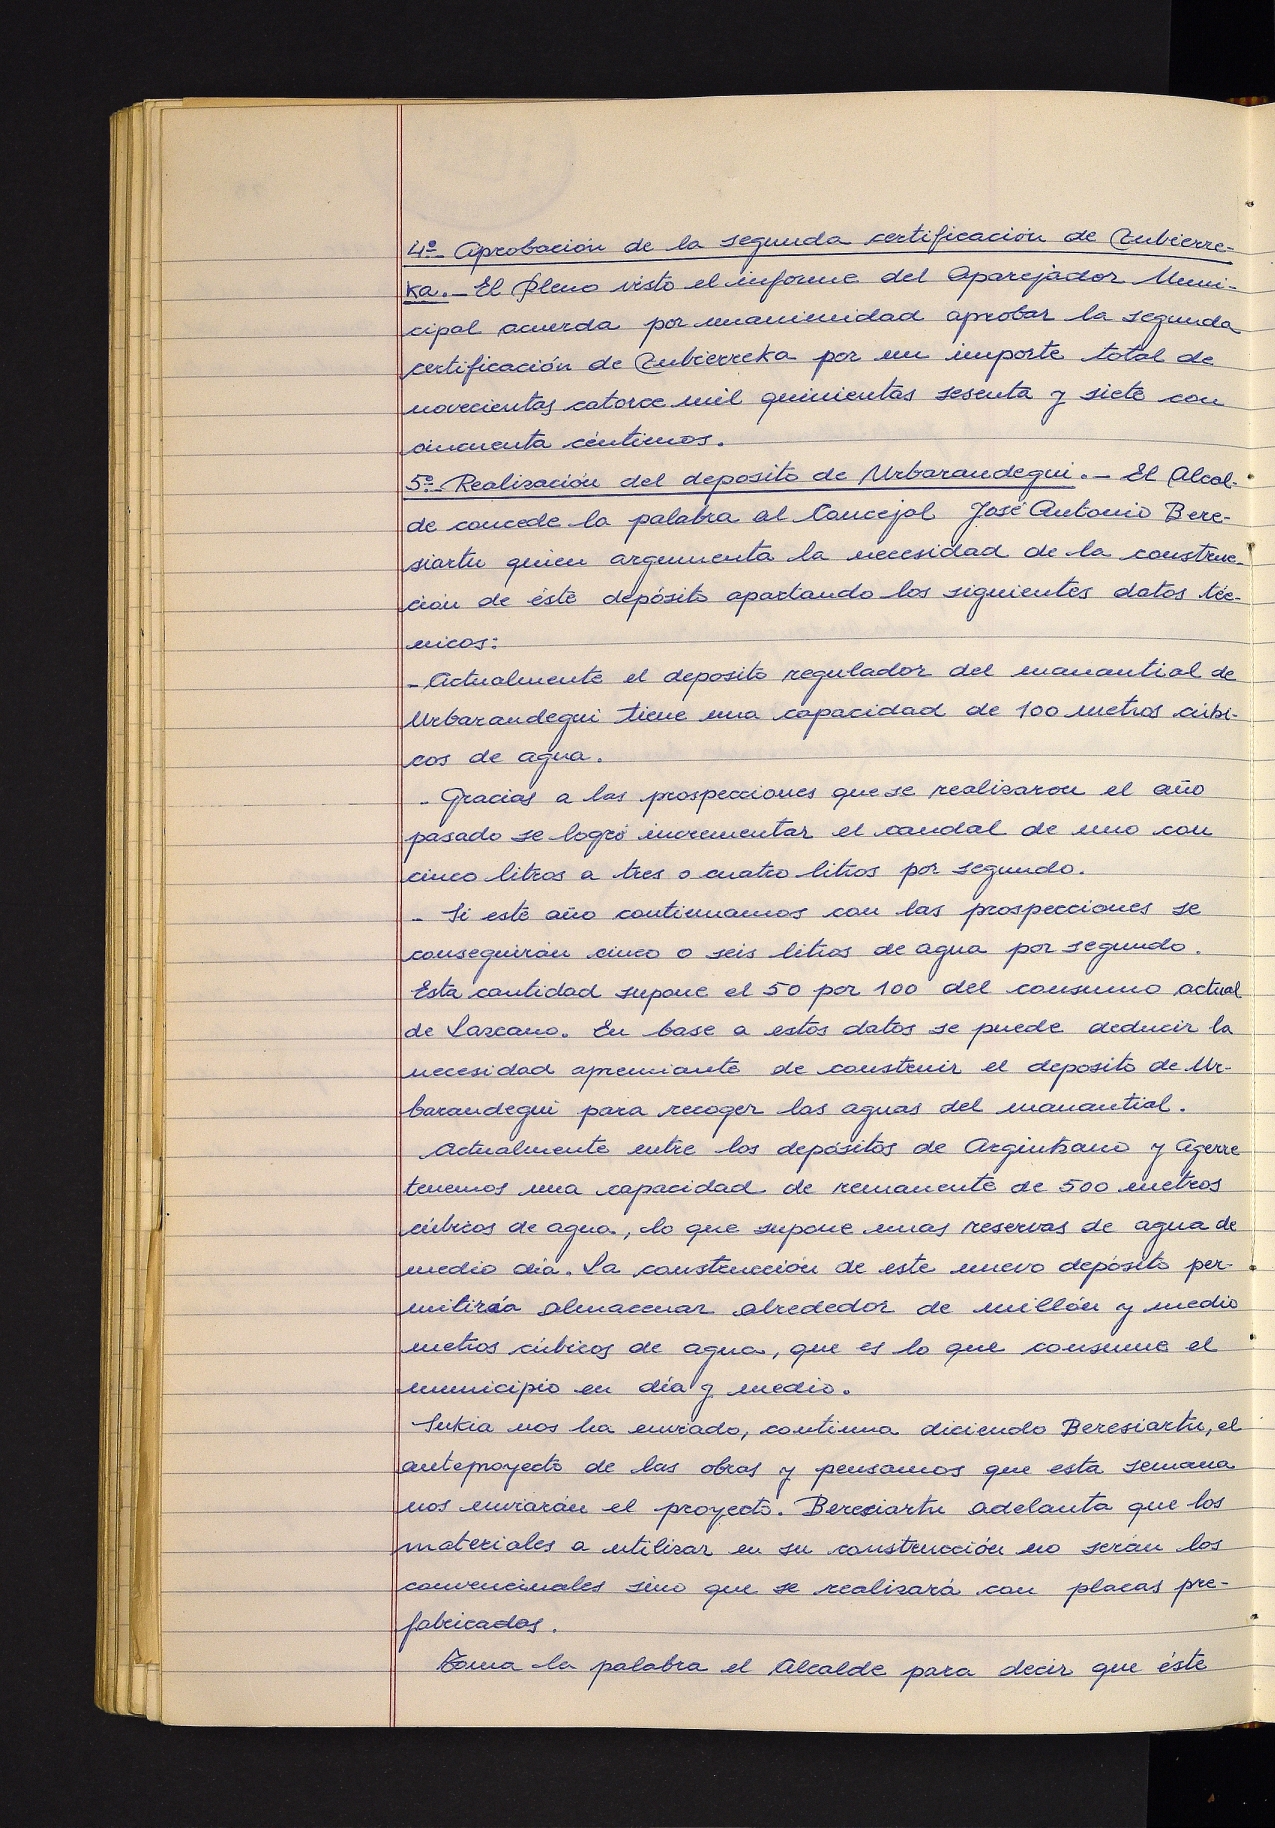 4º- Aprobación de la segunda certificación de Zubierre-
ka.- El Pleno visto el informe del Aparejador Muni-
cipal acuerda por unanimidad aprobar la segunda
certificación de Zubierreka por un importe total de
novecientas catorce mil quinientas sesenta y siete con
cincuenta céntimos.
5º- Realización del deposito de Urbarandegui.- El Alcal-
de concede la palabra al Concejal José Antonio Bere-
siartu quien argumenta la necesidad de la construc-
ción de éste depósito aportando los siguientes datos téc-
nicos:
- Actualmente el deposito regulador del manantial de
Urbarandegui tiene una capacidad de 100 metros cúbi-
cos de agua.
- Gracias a las prospecciones que se realizaron el año
pasado se logró incrementar el caudal de uno con
cinco litros a tres o cuatro litros por segundo.
- Si este año continuamos con las prospecciones se
conseguirán cinco o seis litros de agua por segundo.
Esta cantidad supone el 50 por 100 del consumo actual
de Lazcano. En base a estos datos se puede deducir la
necesidad apremiante de construir el deposito de Ur-
barandegui para recoger las aguas del manantial.
Actualmente entre los depósitos de Argintzano y Agerre
tenemos una capacidad de remanente de 500 metros
cúbicos de agua, lo que supone unas reservas de agua de
medio día. La construcción de este nuevo depósito per-
mitiría almacenar alrededor de millón y medio
metros cúbicos de agua, que es lo que consume el
municipio en día y medio.
Sukia nos ha enviado, continua diciendo Beresiartu, el
anteproyecto de las obras y pensamos que esta semana
nos enviarán el proyecto. Beresiartu adelanta que los
materiales a utilizar en su construcción no serán los
convencinales sino que se realizará con placas pre-
fabricadas.
Toma la palabra el Alcalde para decir que éste